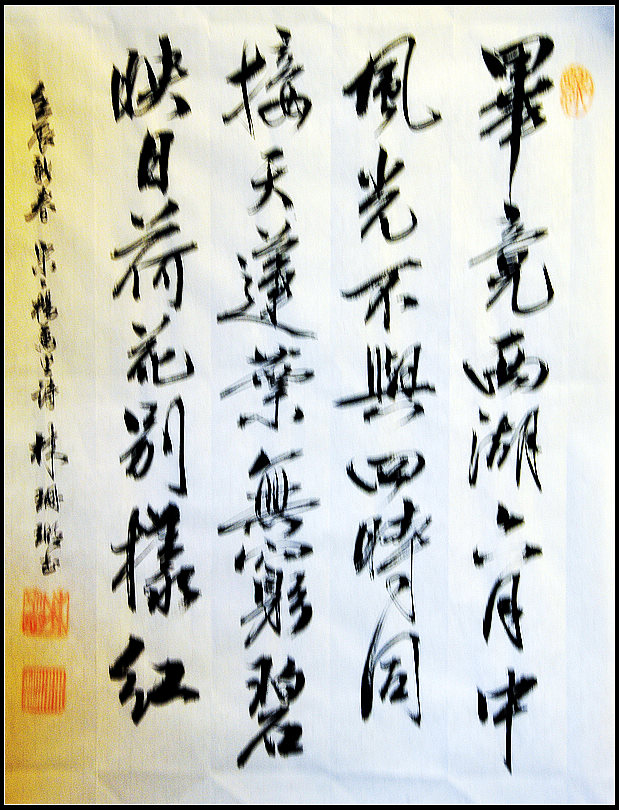 畢竟西湖六月中
風光不與四時同
接天蓮葉無窮碧
映日荷花別樣紅
壬辰新春 宋 楊萬里詩 林